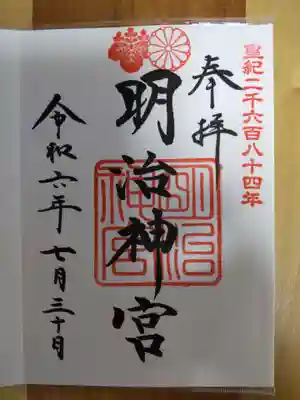 皇紀二千六百八十四年
奉拝
明治神宮
明治神宮
令和六年 七月三十日